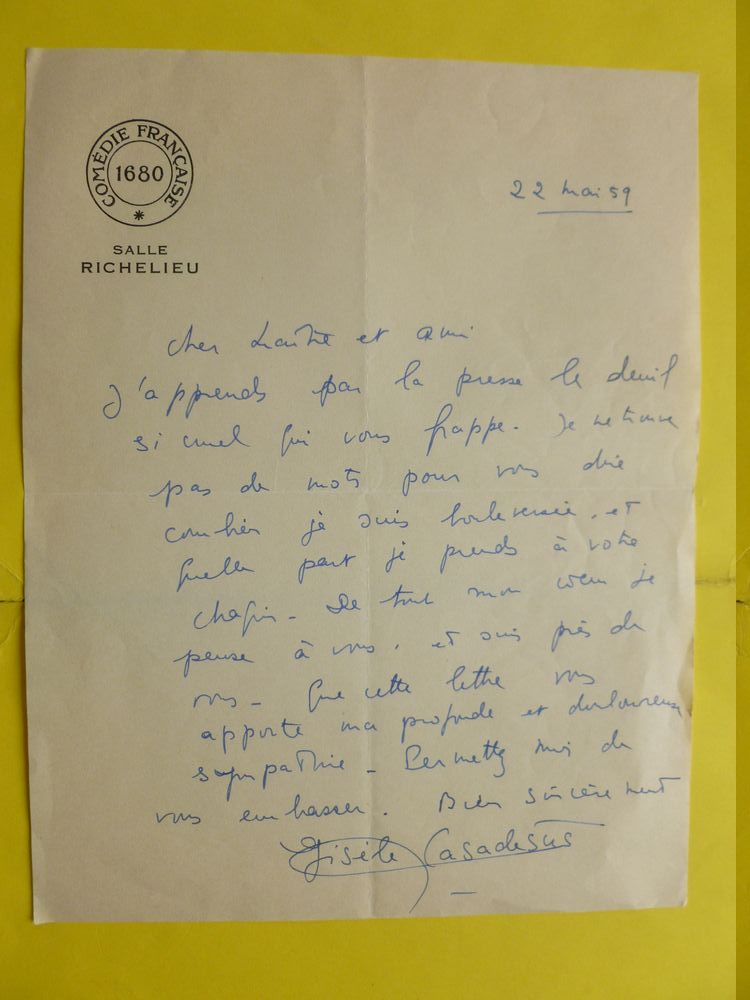 COMÉDIE FRANÇAISE
1680
*
SALLE
RICHELIEU
22 mai 59
Cher Maître et ami
J'apprends par la presse le deuil
si cruel qui vous frappe. Je ne trouve
pas de mots pour vous dire
combien je suis bouleversée, et
quelle part je prends à votre
chagrin - De tout mon cœur je
pense à vous, et suis près de
vous - Que cette lettre vous
apporte ma profonde et douloureuse
sympathie - Permettez moi de
vous embrasser. Bien sincèrement
Gisèle Casadesus